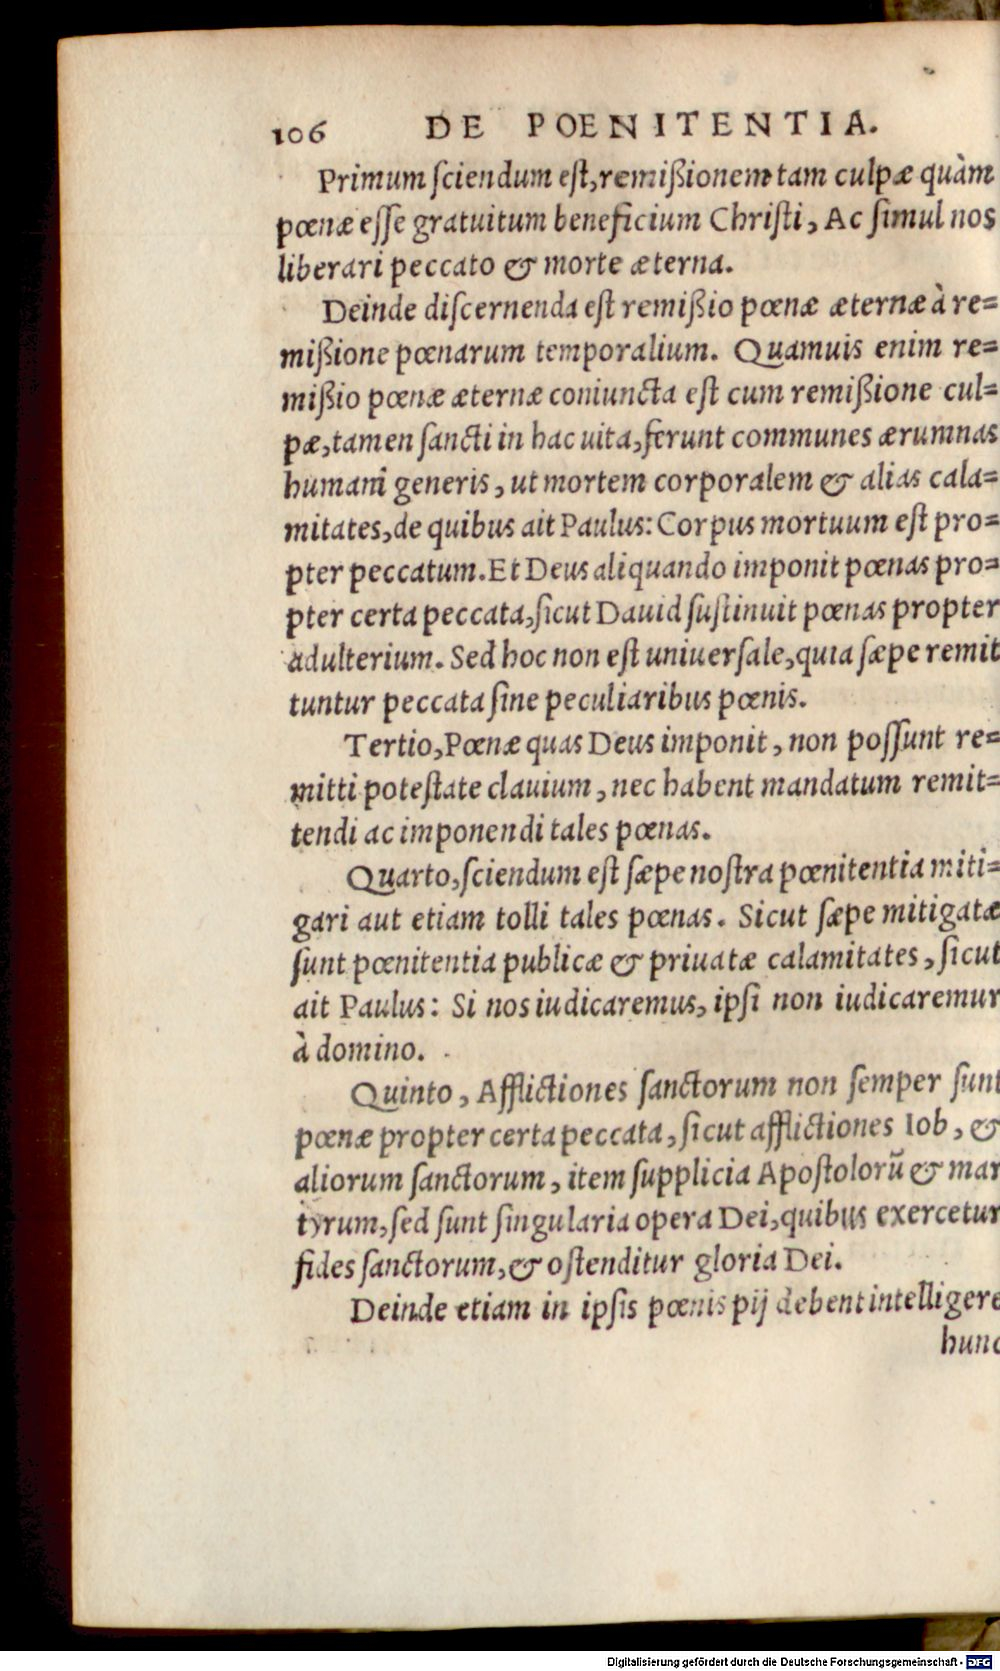 106 DE POENITENTIA.
Primum ſciendum eſt, remiſſionem tam culpæ quàm
pœnæ eſſe gratuitum beneficium Chriſti, Ac ſimul nos
liberari peccato & morte æterna.
Deinde diſcernenda eſt remiſſio pœnæ æternæ à re=
miſſione pœnarum temporalium. Quamuis enim re=
miſſio pœnæ æternæ coniuncta eſt cum remiſſione cul=
pæ, tamen ſancti in hac uita, ferunt communes ærumnas
humani generis, ut mortem corporalem & alias cala=
mitates, de quibus ait Paulus: Corpus mortuum eſt pro=
pter peccatum. Et Deus aliquando imponit pœnas pro=
pter certa peccata, ſicut Dauid ſuſtinuit pœnas propter
adulterium. Sed hoc non eſt uniuerſale, quia ſæpe remit
tuntur peccata ſine peculiaribus pœnis.
Tertio, Pœnæ quas Deus imponit, non poſſunt re=
mitti poteſtate clauium, nec habent mandatum remit=
tendi ac imponendi tales pœnas.
Quarto, ſciendum eſt ſæpe noſtra pœnitentia miti=
gari aut etiam tolli tales pœnas. Sicut ſæpe mitigatæ
ſunt pœnitentia publicæ & priuatæ calamitates, ſicut
ait Paulus: Si nos iudicaremus, ipſi non iudicaremur
à domino.
Quinto, Afflictiones ſanctorum non ſemper ſunt
pœnæ propter certa peccata, ſicut afflictiones Iob, &
aliorum ſanctorum, item ſupplicia Apoſtolorũ & mar
tyrum, ſed ſunt ſingularia opera Dei, quibus exercetur
fides ſanctorum, & oſtenditur gloria Dei.
Deinde etiam in ipſis pœnis pij debent intelligere
hunc
Digitalisierung gefördert durch die Deutsche Forschungsgemeinschaft - DFG